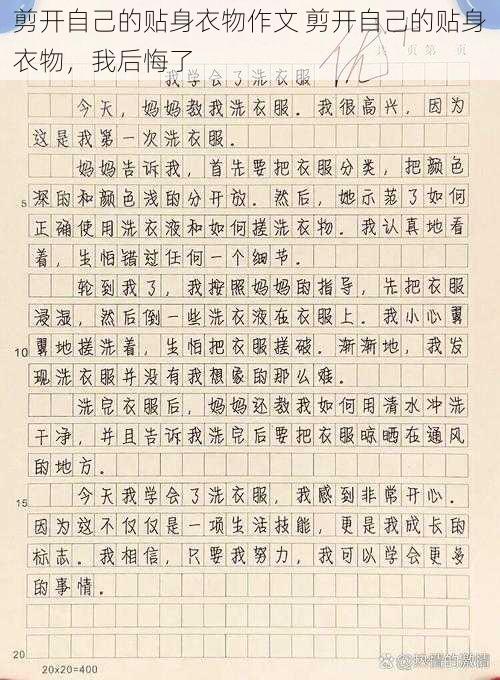 剪开自己的贴身衣物作文 剪开自己的贴身
衣物，我后悔了
优
页 第 页
我学会了洗衣服
今天，妈妈教我洗衣服。我很高兴，因为
这是我第一次洗衣服。
妈妈告诉我，首先要把衣服分类，把颜色
5 深的和颜色浅的分开放。然后，她示范了如何
正确使用洗衣液和如何搓洗衣物。我认真地看
着，生怕错过任何一个细节。
轮到我了，我按照妈妈的指导，先把衣服
浸湿，然后倒一些洗衣液在衣服上。我小心翼
10 翼地搓洗着，生怕把衣服搓破。渐渐地，我发
现洗衣服并没有我想象的那么难。
洗完衣服后，妈妈还教我如何用清水冲洗
干净，并且告诉我洗完后要把衣服晾晒在通风
的地方。
15 今天我学会了洗衣服，我感到非常开心。
因为这不仅仅是一项生活技能，更是我成长的
标志。我相信，只要我努力，我可以学会更多
的事情。
20
20×20=400